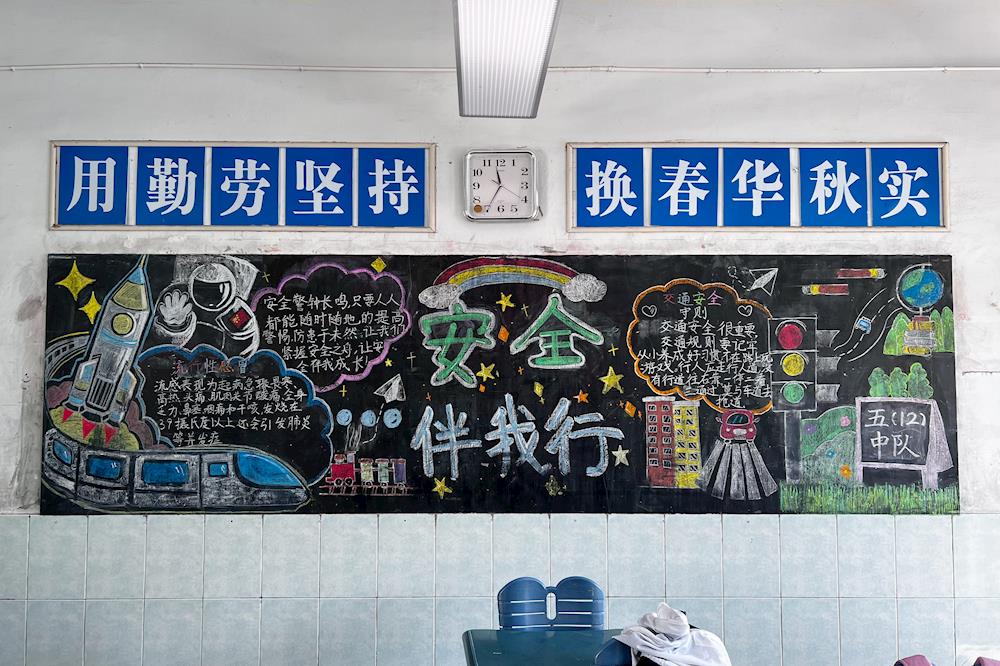 用勤劳坚持
换春华秋实
安全警钟长鸣,只要人人
都能随时随地,的提高
警惕,防患于未然,让我们
紧握安全之舟,让安
全伴我成长
流行性感冒
流感表现为起病急骤畏寒
高热、头痛、肌肉关节酸痛、全身
乏力、鼻塞咽痛和干咳,发烧在
37摄氏度以上还会引发肺炎
等并发症
安全
伴我行
交通安全
守则
交通安全很重要
交通规则要记牢
从小养成好习惯不在路上玩
游戏,行人应走行人道,没
有行道往右靠一停二看
三通过,
抢道
五(12)
中队
11 12 1
10 2
9 3
8 4
7 6 5